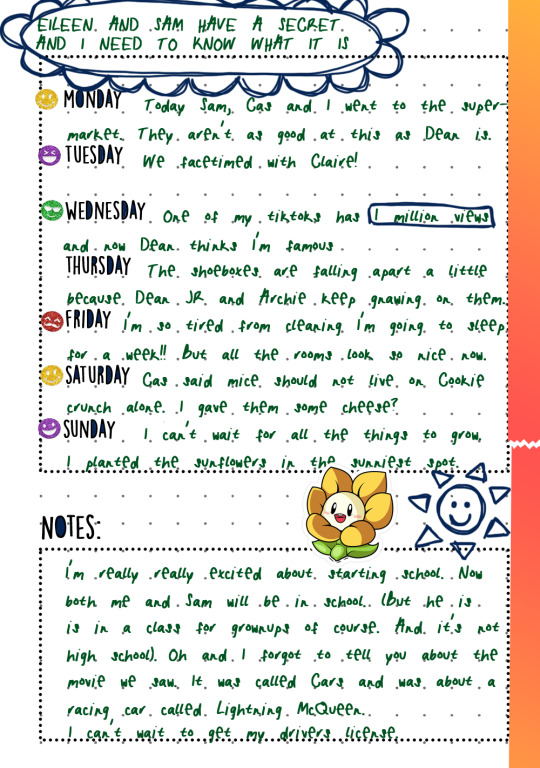 EILEEN. AND SAM HAVE A SECRET.
AND I NEED TO KNOW WHAT IT IS
MONDAY Today Sam, Cas and I went to the super-
market. They aren't as good at this as Dean is.
TUESDAY We facetimed with Claire!
WEDNESDAY One of my tiktoks has 1 million views
and now Dean thinks I'm famous.
THURSDAY The shoeboxes are falling apart a little
because Dean JR. and Archie keep gnawing on them.
FRIDAY I'm so tired from cleaning. I'm going to sleep
for a week!! But all the rooms look so nice now.
SATURDAY Cas said mice should not live on Cookie
crunch alone. I gave them some cheese?
SUNDAY I can't wait for all the things to grow,
I planted the sunflowers in the sunniest spot.
NOTES:
I'm really really excited about starting school. Now
both me and Sam will be in school. (But he is
is in a class for grownups of course. And it's not
high school). Oh and I forgot to tell you about the
movie we saw. It was called Cars and was about a
racing car called Lightning McQueen.
I can't wait to get my drivers license.